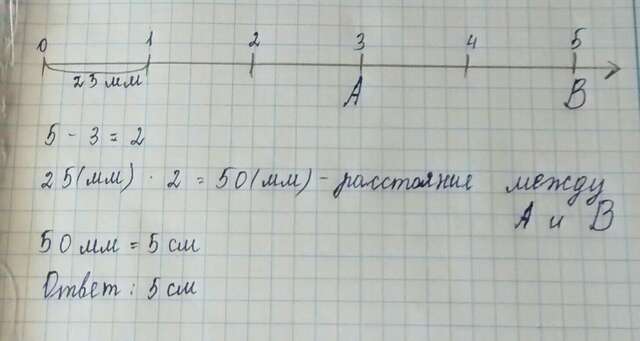 0 1 2 3 4 5
25 мм A B
5 - 3 = 2
25(мм) · 2 = 50(мм) - расстояние между
A и B
50 мм = 5 см
Ответ: 5 см